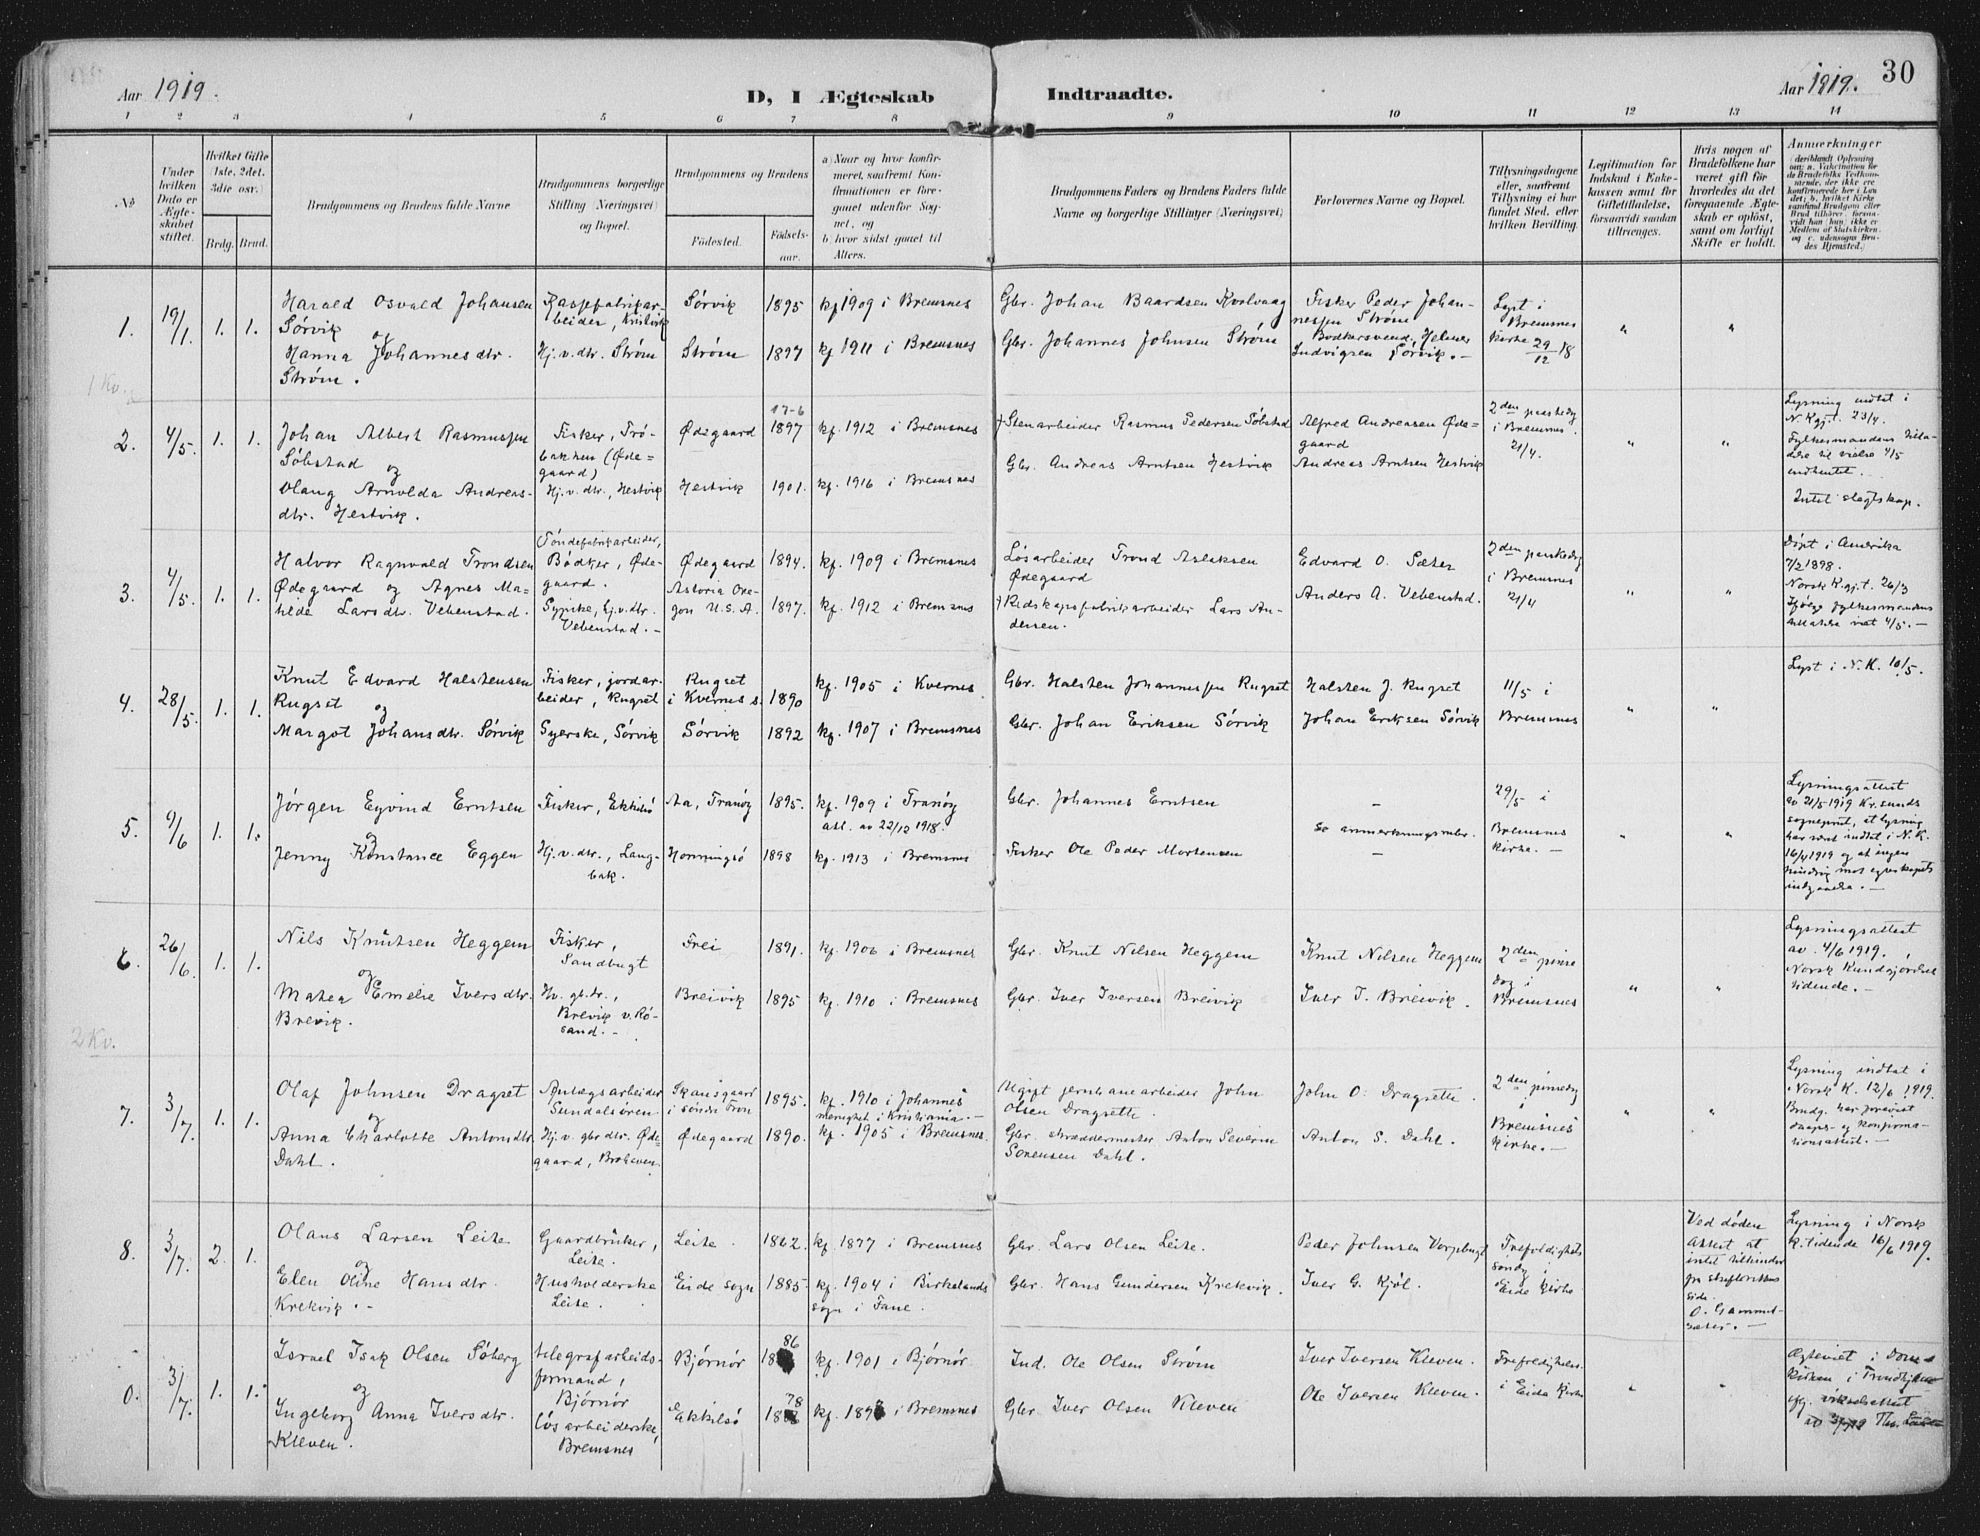 Aar 1919.
D, I Ægteskab Indtraadte.
Aar 1919.
30
1 2 3 4 5 6 7 8 9 10 11 12 13 14
No
Under hvilken Dato er Ægteskabet stiftet.
Hvilket Gifte (1ste, 2det, 3die osv.)
Brdg. Brud.
Brudgommens og Brudens fulde Navne
Brudgommens borgerlige Stilling (Næringsvei) og Bopæl.
Brudgommens og Brudens
Födested.
Födselsaar.
a) Naar og hvor konfirmeret, saafremt Konfirmationen er foregaaet udenfor Sognet, og
b) hvor sidst gaaet til Alters.
Brudgommens Faders og Brudens Faders fulde Navne og borgerlige Stillinger (Næringsvei)
Forlovernes Navne og Bopæl.
Tillysningsdagene eller, saafremt Tillysning ei har fundet Sted, efter hvilken Bevilling.
Legitimation for Indskud i Enkekassen samt for Giftetilladelse, forsaavidt saadan tiltrænges.
Hvis nogen af Brudefolkene har været gift før hvorledes da det foregaaende Ægteskab er oplöst, samt om lovligt Skifte er holdt.
Anmærkninger
1. 19/1. 1. 1.
Harald Osvald Johansen
Sørvik
og
Hanna Johannesdtr.
Strøm.
beider, Kristvik
Hj.v.dtr. Strøm
Sørvik 1895 kf 1909 i Bremsnes
Strøm 1897 kf 1911 i Bremsnes
Gbr. Johan Baardsen Kvalvaag
Gbr. Johannes Johnsen Strøm
Fisker Peder Johannessen Strøm
Bødkersvend, Helmer
Ludvigsen Sørvik. -
Lyst i
Bremsnes
kirke 29/12 18
" "
1 Kv.
2. 4/5. 1. 1.
Johan Albert Rasmussen
Sølstad
og
Olaug Arnolda Andreasdtr. Hestvik.
Fisker, Trøbakken (Ødegaard)
Hj.v.dtr., Hestvik
17-6
Ødegaard 1897 kf. 1912 i Bremsnes
Hestvik 1901. kf. 1916 i Bremsnes
† Stenarbeider Rasmus Pedersen Sølstad
Gbr. Andreas Arntsen Hestvik
Alfred Andreasen Ødegaard
Andreas Arntsen Hestvik
2den paaskedg
i Bremsnes.
21/4.
" "
Lysning indtat i
N. Kgjt. 23/4.
Fylkesmandens tilladelse til vielse 4/5
indhentet.
Intet slegtskap.
3. 4/5. 1. 1.
Halvor Ragnvald Trondsen
Ødegaard og Agnes Mathilde Larsdtr. Vebenstad.
(Tøndefabrikarbeider,
Bødker, Ødegaard.
Sypike, Hj.v.dtr.
Vebenstad. -
Ødegaard 1894. kf. 1909 i Bremsnes
Astoria Oregon U.S.A. 1897. kf. 1912 i Bremsnes
Løsarbeider Trond Aslaksen
Ødegaard
† Redskapsfabrikarbeider Lars Andersen.
Edvard O. Sæter
Anders A. Vebenstad.
2den paaskedg
i Bremsnes
21/4
" "
Døpt i Amerika
7/2 1898.
Norsk Kgj.t. 26/3
4. 28/5. 1. 1.
Knut Edvard Halstensen
Rugset
og
Margot Johansdtr. Sørvik
Fisker, jordarbeider, Rugset
Syerske, Sørvik
Rugset
i Kvernes s. 1890 kf. 1905 i Kvernes
Sørvik 1892 kf. 1907 i Bremsnes
Gbr. Halsten Johannessen Rugset
Gbr. Johan Eriksen Sørvik
Halsten J. Rugset
Johan Eriksen Sørvik
11/5 i
Bremsnes
" "
Lyst i N.K. 10/5.
5. 9/6 1. 1.
Jørgen Eyvind Erntsen
og
Jenny Konstance Eggen
Fisker, Ekkilsø
Hj.v.dtr., Langbak.
Aa, Tranøy 1895. kf. 1909 i Tranøy
att. av 22/12 1918.
Honningsø 1898 kf. 1913 i Bremsnes
Gbr. Johannes Erntsen
Fisker Ole Peder Mortensen
-
Se anmerkningsrubr.
-
29/5 i
Bremsnes
kirke. -
" "
Lysningsattest
av 21/5 1919 Kr.sunds
sogneprest, at lysning
har vært indtat i N.K.
16/4 1919 og at ingen
hindring mot egteskapets
indgaaelse. -
6. 26/6. 1. 1.
Nils Knutsen Heggem
og
Matea Emelie Iversdtr.
Breivik.
Fisker,
Sandbugt
Hv. gb.tr.,
Brevik v. Røsand. -
Frei 1891. kf. 1906 i Bremsnes
Breivik 1895 kf. 1910 i Bremsnes
Gbr. Knut Nilsen Heggem
Gbr. Iver Iversen Breivik
Knut Nilsen Heggem
Iver I. Breivik.
2den pinse
dag i
Bremsnes
" "
Lysningsattest
av 4/6 1919.
Norsk Kundgjørelsestidende. -
2 Kv.
7. 3/7. 1. 1.
Olaf Johnsen Dragset
og
Anna Charlotte Antonsdtr.
Dahl.
Anlægsarbeider
Sundalsøren
Hj.v. gbrdtr. Ødegaard, Brohaven
1895. kf. 1910 i Johannes
menighet i Kristiania. -
Ødegaard 1890. kf. 1905 i Bremsnes.
Ugift jernbanearbeider John
Olsen Dragsette.
Gbr. skræddermester Anton Severin
Sørensen Dahl.
John O. Dragsette.
Anton S. Dahl.
2den pinsedg
i
Bremsnes
kirke. -
" "
Lysning indtat i
Norsk K. 12/6 1919.
Brudg. har forevist
daaps- og konfirmationsattest. -
8. 3/7. 2. 1.
Olaus Larsen Leite
og
Elen Oline Hansdtr.
Krekvik. -
Gaardbruker,
Leite.
Husholderske
Leite.
Leite. 1862. kf. 1877 i Bremsnes
Eide sogn 1885. kf. 1904 i Birkelands
sogn i Fane.
Gbr. Lars Olsen Leite.
Gbr. Hans Gundersen Krekvik.
Peder Johnsen Vorpbugt
Iver G. Kjøl.
Trefoldighets
søndg i
Eide kirke
Ved døden
Attest at
intet til hinder
fra skifterettens
side.
O. Gammelsæter. -
Lysning i Norsk
K.tidende 16/6 1919.
0. 3/7. 1. 1.
Israel Isak Olsen Søberg
og
Ingeborg Anna Iversdtr.
Kleven.
telegrafarbeidsformand,
Bjørnør
løsarbeiderske,
Bremsnes
Bjørnør 1886 kf. 1901 i Bjørnør
Ekkilsø 1878 kf. 1893 i Bremsnes
Ind. Ole Olsen Strøm
Gbr. Iver Olsen Kleven
Iver Iversen Kleven.
Ole Iversen Kleven.
i Eide kirke
" "
Ægteviet i Domkirken i Trondhjem